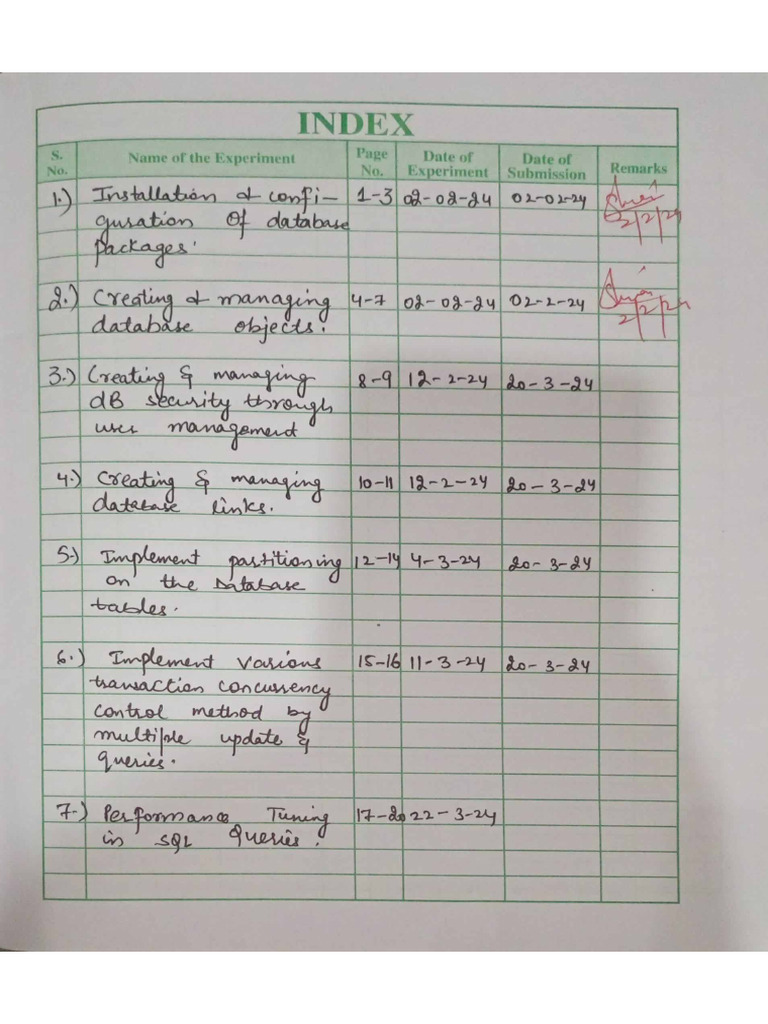 INDEX
S. No. Name of the Experiment Page No. Date of Experiment Date of Submission Remarks
1.) Installation & confi- 1-3 02-02-24 02-02-24
guration Of database 2/2/24
packages.
2.) Creating & managing 4-7 02-02-24 02-2-24
database objects. 2/2/24
3.) Creating & managing 8-9 12-2-24 20-3-24
dB security through
user management
4.) Creating & managing 10-11 12-2-24 20-3-24
database links.
5.) Implement partitioning 12-14 4-3-24 20-3-24
on the Database
tables.
6.) Implement various 15-16 11-3-24 20-3-24
transaction concurrency
control method by
multiple update &
queries.
7.) Performance Tuning 17-20 22-3-24
in SQL Queries.